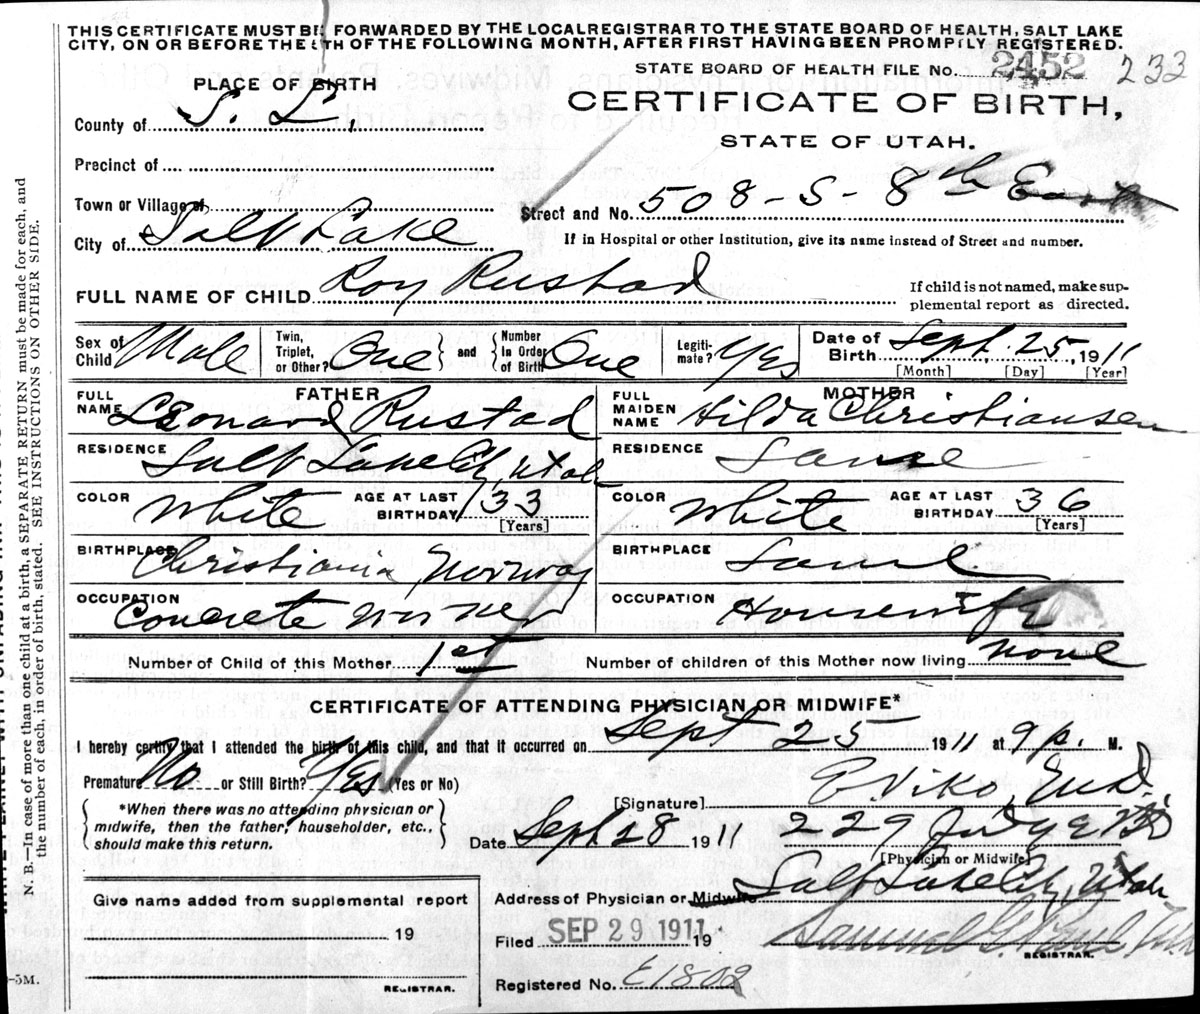 THIS CERTIFICATE MUST BE FORWARDED BY THE LOCAL REGISTRAR TO THE STATE BOARD OF HEALTH, SALT LAKE
CITY, ON OR BEFORE THE 5TH OF THE FOLLOWING MONTH, AFTER FIRST HAVING BEEN PROMPTLY REGISTERED.
STATE BOARD OF HEALTH FILE No. 2452 233
PLACE OF BIRTH
CERTIFICATE OF BIRTH,
County of S. L.
STATE OF UTAH.
Precinct of
Town or Village of
Street and No. 508-S-8th East
City of Salt Lake
If in Hospital or other Institution, give its name instead of Street and number.
FULL NAME OF CHILD Roy Rustad
If child is not named, make sup-
plemental report as directed.
Sex of Child Male
Twin, Triplet, or Other? One } and { Number in Order of Birth One
Legiti-mate? Yes
Date of Birth Sept. 25, 1911
[Month] [Day] [Year]
FATHER MOTHER
FULL NAME Leonard Rustad FULL MAIDEN NAME Hilda Christiansen
RESIDENCE Salt Lake City, Utah RESIDENCE Same
COLOR White AGE AT LAST BIRTHDAY 33 [Years] COLOR White AGE AT LAST BIRTHDAY 36 [Years]
BIRTHPLACE Christiania Norway BIRTHPLACE Same
OCCUPATION Concrete worker OCCUPATION Housewife
Number of Child of this Mother 1st Number of children of this Mother now living none
CERTIFICATE OF ATTENDING PHYSICIAN OR MIDWIFE*
I hereby certify that I attended the birth of this child, and that it occurred on Sept 25 1911 at 9 p. M.
Premature No or Still Birth? Yes (Yes or No)
[Signature] E. Viko, M.D.
*When there was no attending physician or
midwife, then the father, householder, etc.,
should make this return.
Date Sept 28 1911 229
[Physician or Midwife]
Give name added from supplemental report
Address of Physician or Midwife Salt Lake City, Utah
19
Filed SEP 29 1911 19 Samuel G.
REGISTRAR. REGISTRAR.
Registered No. E1802
-5M.
N. B.—In case of more than one child at a birth, a SEPARATE RETURN must be made for each, and
the number of each, in order of birth, stated. SEE INSTRUCTIONS ON OTHER SIDE.